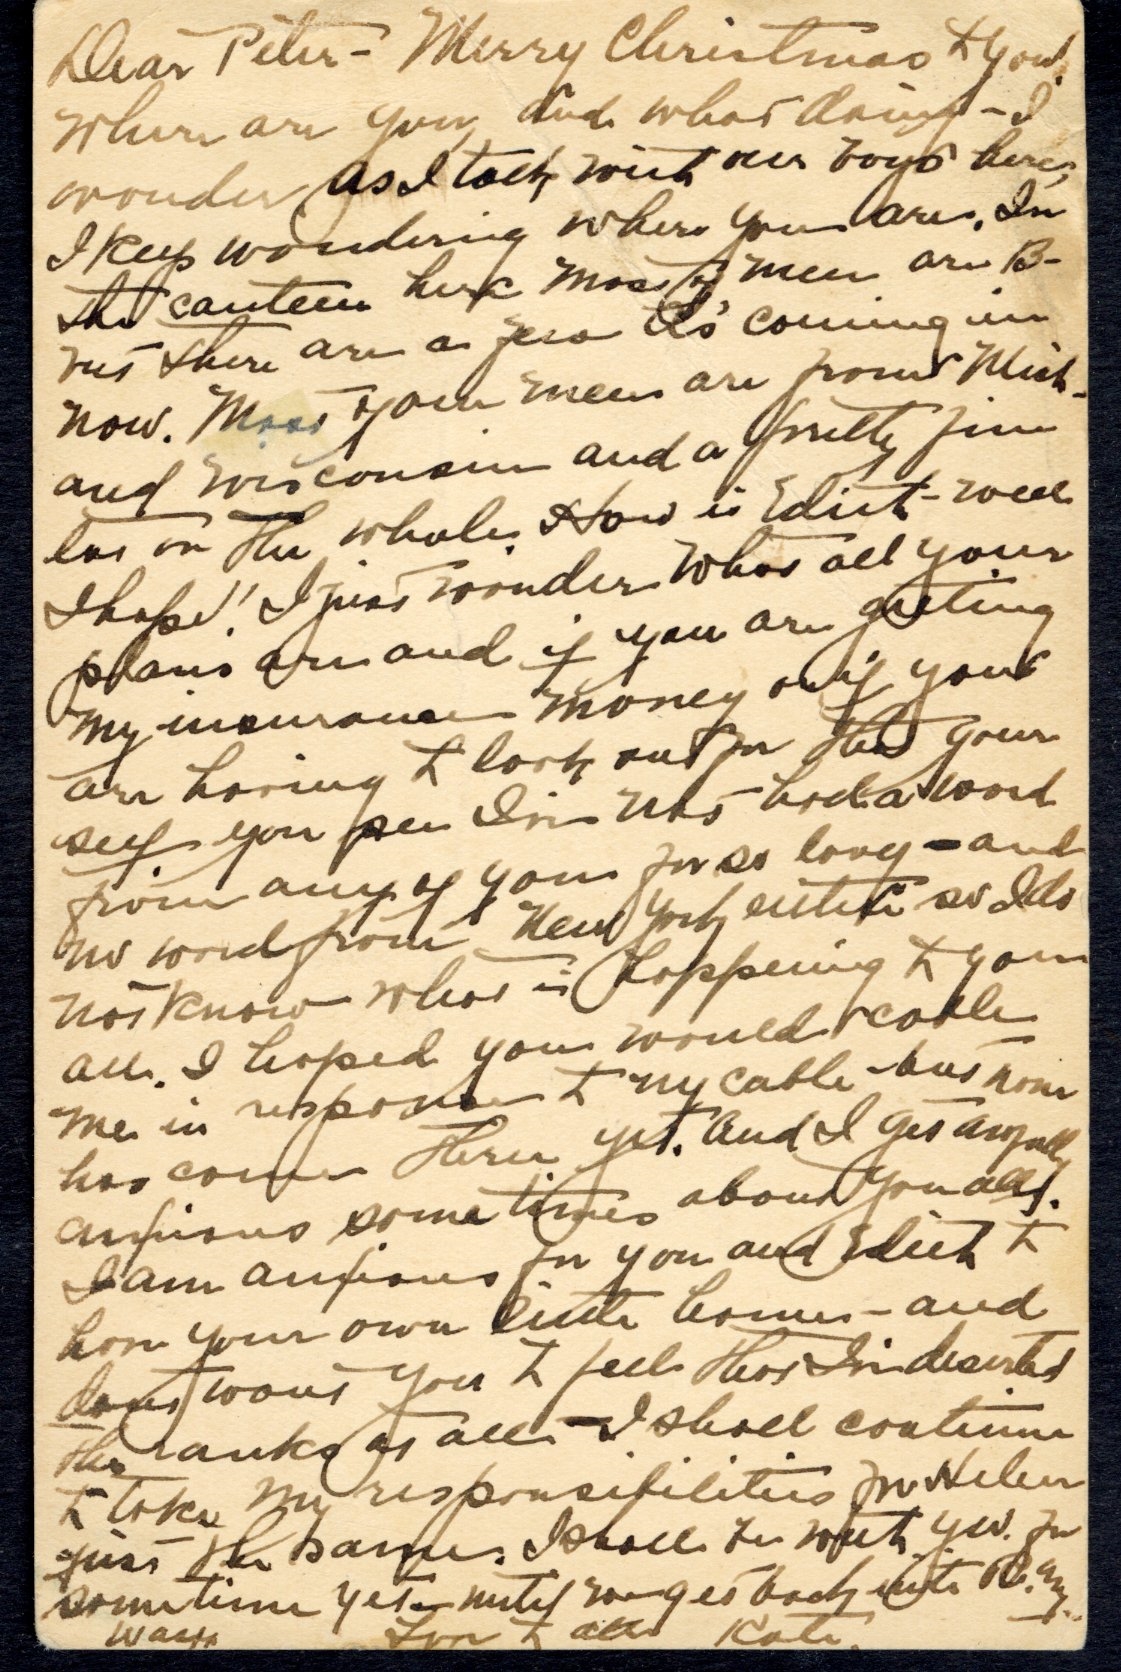 Dear Peter - Merry Christmas to you!
Where are you, and what doing - I
wonder as I talk with our boys here,
I keep wondering where you are. In
the canteen here most of men are B-
but there are a few A's coming in
now. Most of our men are from Mich-
and Wisconsin and a pretty fine
lot on the whole. How is Edith - well
I hope! I just wonder what all your
plans are and if you are getting
my insurance money or if you
are having to look out for that your
self you see I've not had a word
from any of you for so long - and
no word from New York either so I do
not know what is happening to you
all. I hoped you would cable
me in response to my cable - but none
has come here yet. And I get awfully
anxious sometimes about you all.
I am anxious for you and Edith to
have your own little home - and
dont want you to feel that I've deserted
the ranks at all - I shall continue
to take my responsibilities for Helen
just the same. I shall be with you for
sometime yet - until we get back
ways Love to all Kate.